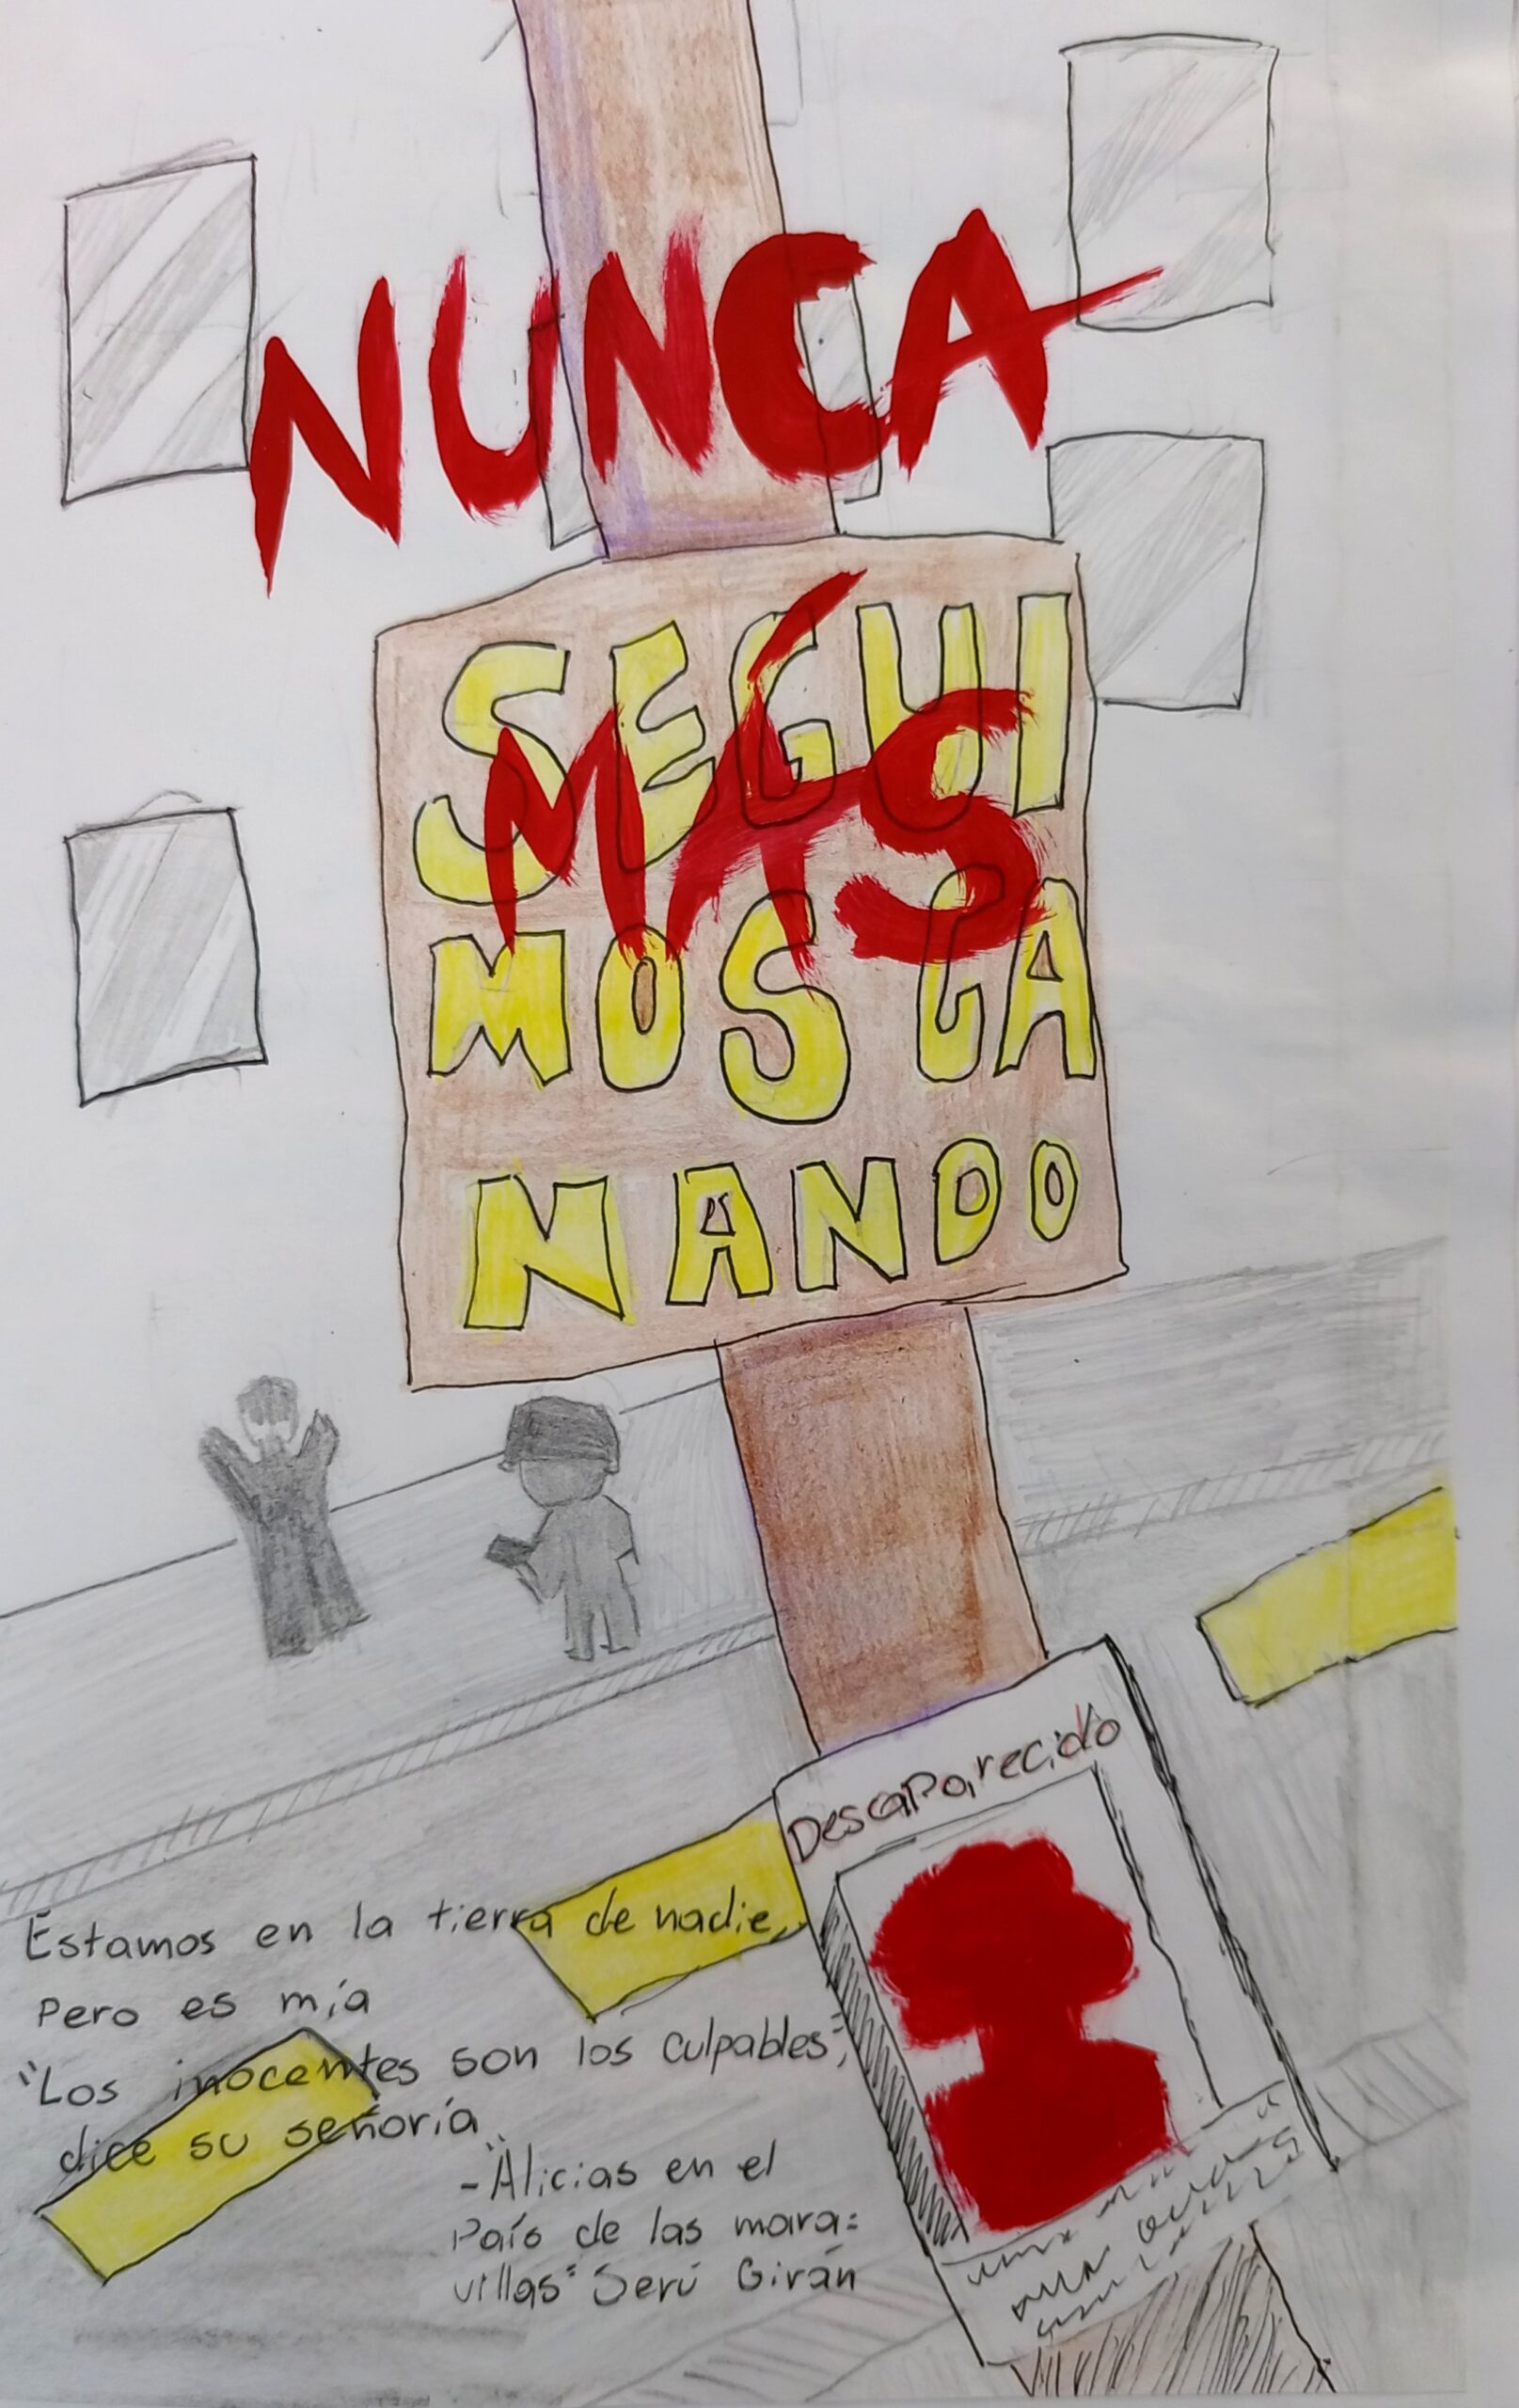 NUNCA
MÁS
SEGUI
MOS GA
NANDO
Descaparecido
Estamos en la tierra de nadie,
Pero es mía
"Los inocentes son los culpables",
dice su señoría
-"Alicias en el
País de las mara=
villas" Serú Girán